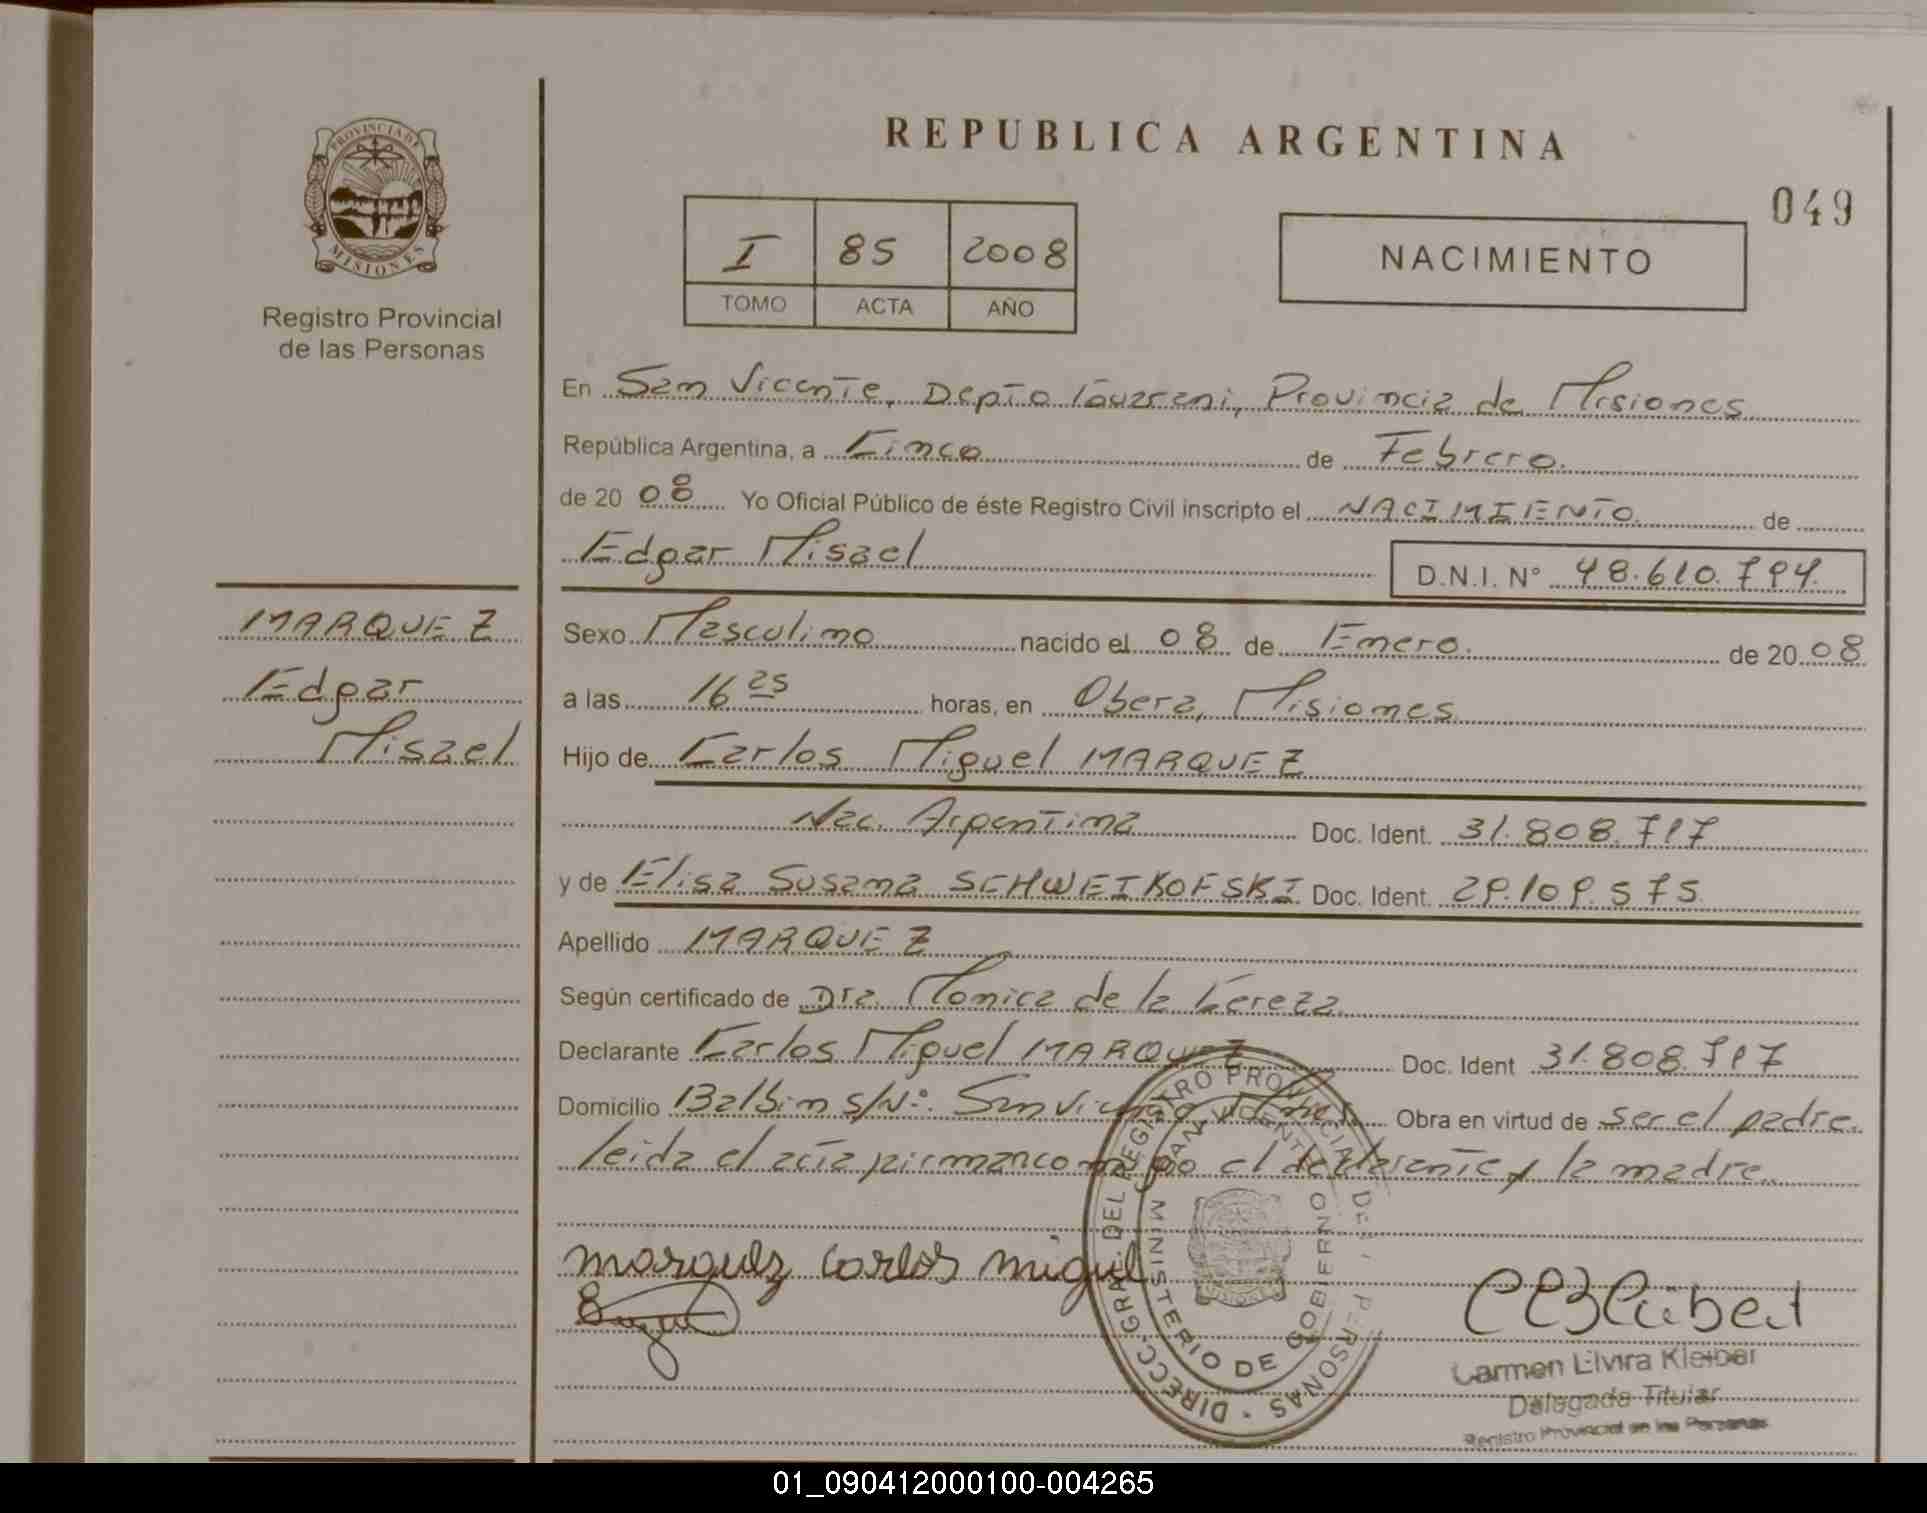 REPUBLICA ARGENTINA
049
PROVINCIA DE
MISIONES
Registro Provincial
de las Personas
I 85 2008
TOMO ACTA AÑO
NACIMIENTO
En San Vicente, Depto Guarani, Provincia de Misiones
República Argentina, a Cinco de Febrero.
de 20 08 Yo Oficial Público de éste Registro Civil inscripto el NACIMIENTO de
Edgar Misael
D.N.I. Nº 48.610.794.
MARQUEZ
Edgar
Misael
Sexo Masculino nacido el 08 de Enero. de 20 08
a las 16 25 horas, en Obera, Misiones
Hijo de Carlos Miguel MARQUEZ
Nac. Argentina Doc. Ident. 31.808.717
y de Elisa Susana SCHWEIKOFSKI Doc. Ident. 29.109.575
Apellido MARQUEZ
Según certificado de Dra. Monica de la
Declarante Carlos Miguel MARQUEZ Doc. Ident 31.808.717
Domicilio Balbin s/Nº. San Vicente Obra en virtud de ser el padre.
leida el acta firman conmigo el declarante y la madre.
marquez carlos miguel
DIRECC. GRAL. DEL REGISTRO PROVINCIAL DE PERSONAS
SAN VICENTE
MINISTERIO DE GOBIERNO
MISIONES
Carmen Elvira Kleiber
Delegada Titular
Registro Provincial de las Personas
01_090412000100-004265